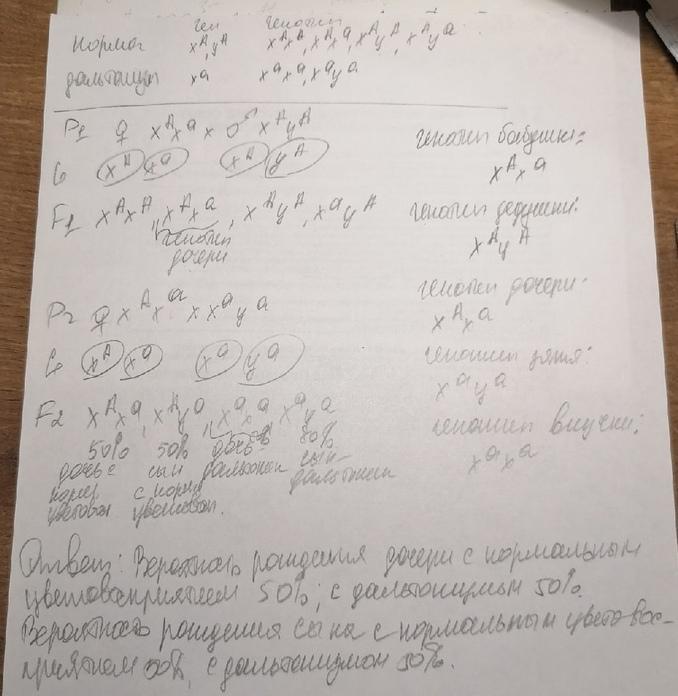 ген генотип
Норма x^A, y^A x^A x^A, x^A x^a, x^A y^A, x^A y^a
дальтонизм x^a x^a x^a, x^a y^a
P1 ♀ x^A x^a × ♂ x^A y^A
G x^A x^a x^A y^A
F1 x^A x^A, x^A x^a, x^A y^A, x^a y^A
генотип
дочери
P2 ♀ x^A x^a × x^a y^a
G x^A x^a x^a y^a
F2 x^A x^a, x^A y^a, x^a x^a, x^a y^a
50% 50% дочь 50%
дочь с сын дальтоник сын
норм с норм дальтоник
цветовосп цветовосп.
генотип бабушки:
x^A x^a
генотип дедушки:
x^A y^A
генотип дочери:
x^A x^a
генотип зятя:
x^a y^a
генотип внучки:
x^a x^a
Ответ: Вероятность рождения дочери с нормальным
цветовосприятием 50%; с дальтонизмом 50%.
Вероятность рождения сына с нормальным цветовос-
приятием 50%, с дальтонизмом 50%.